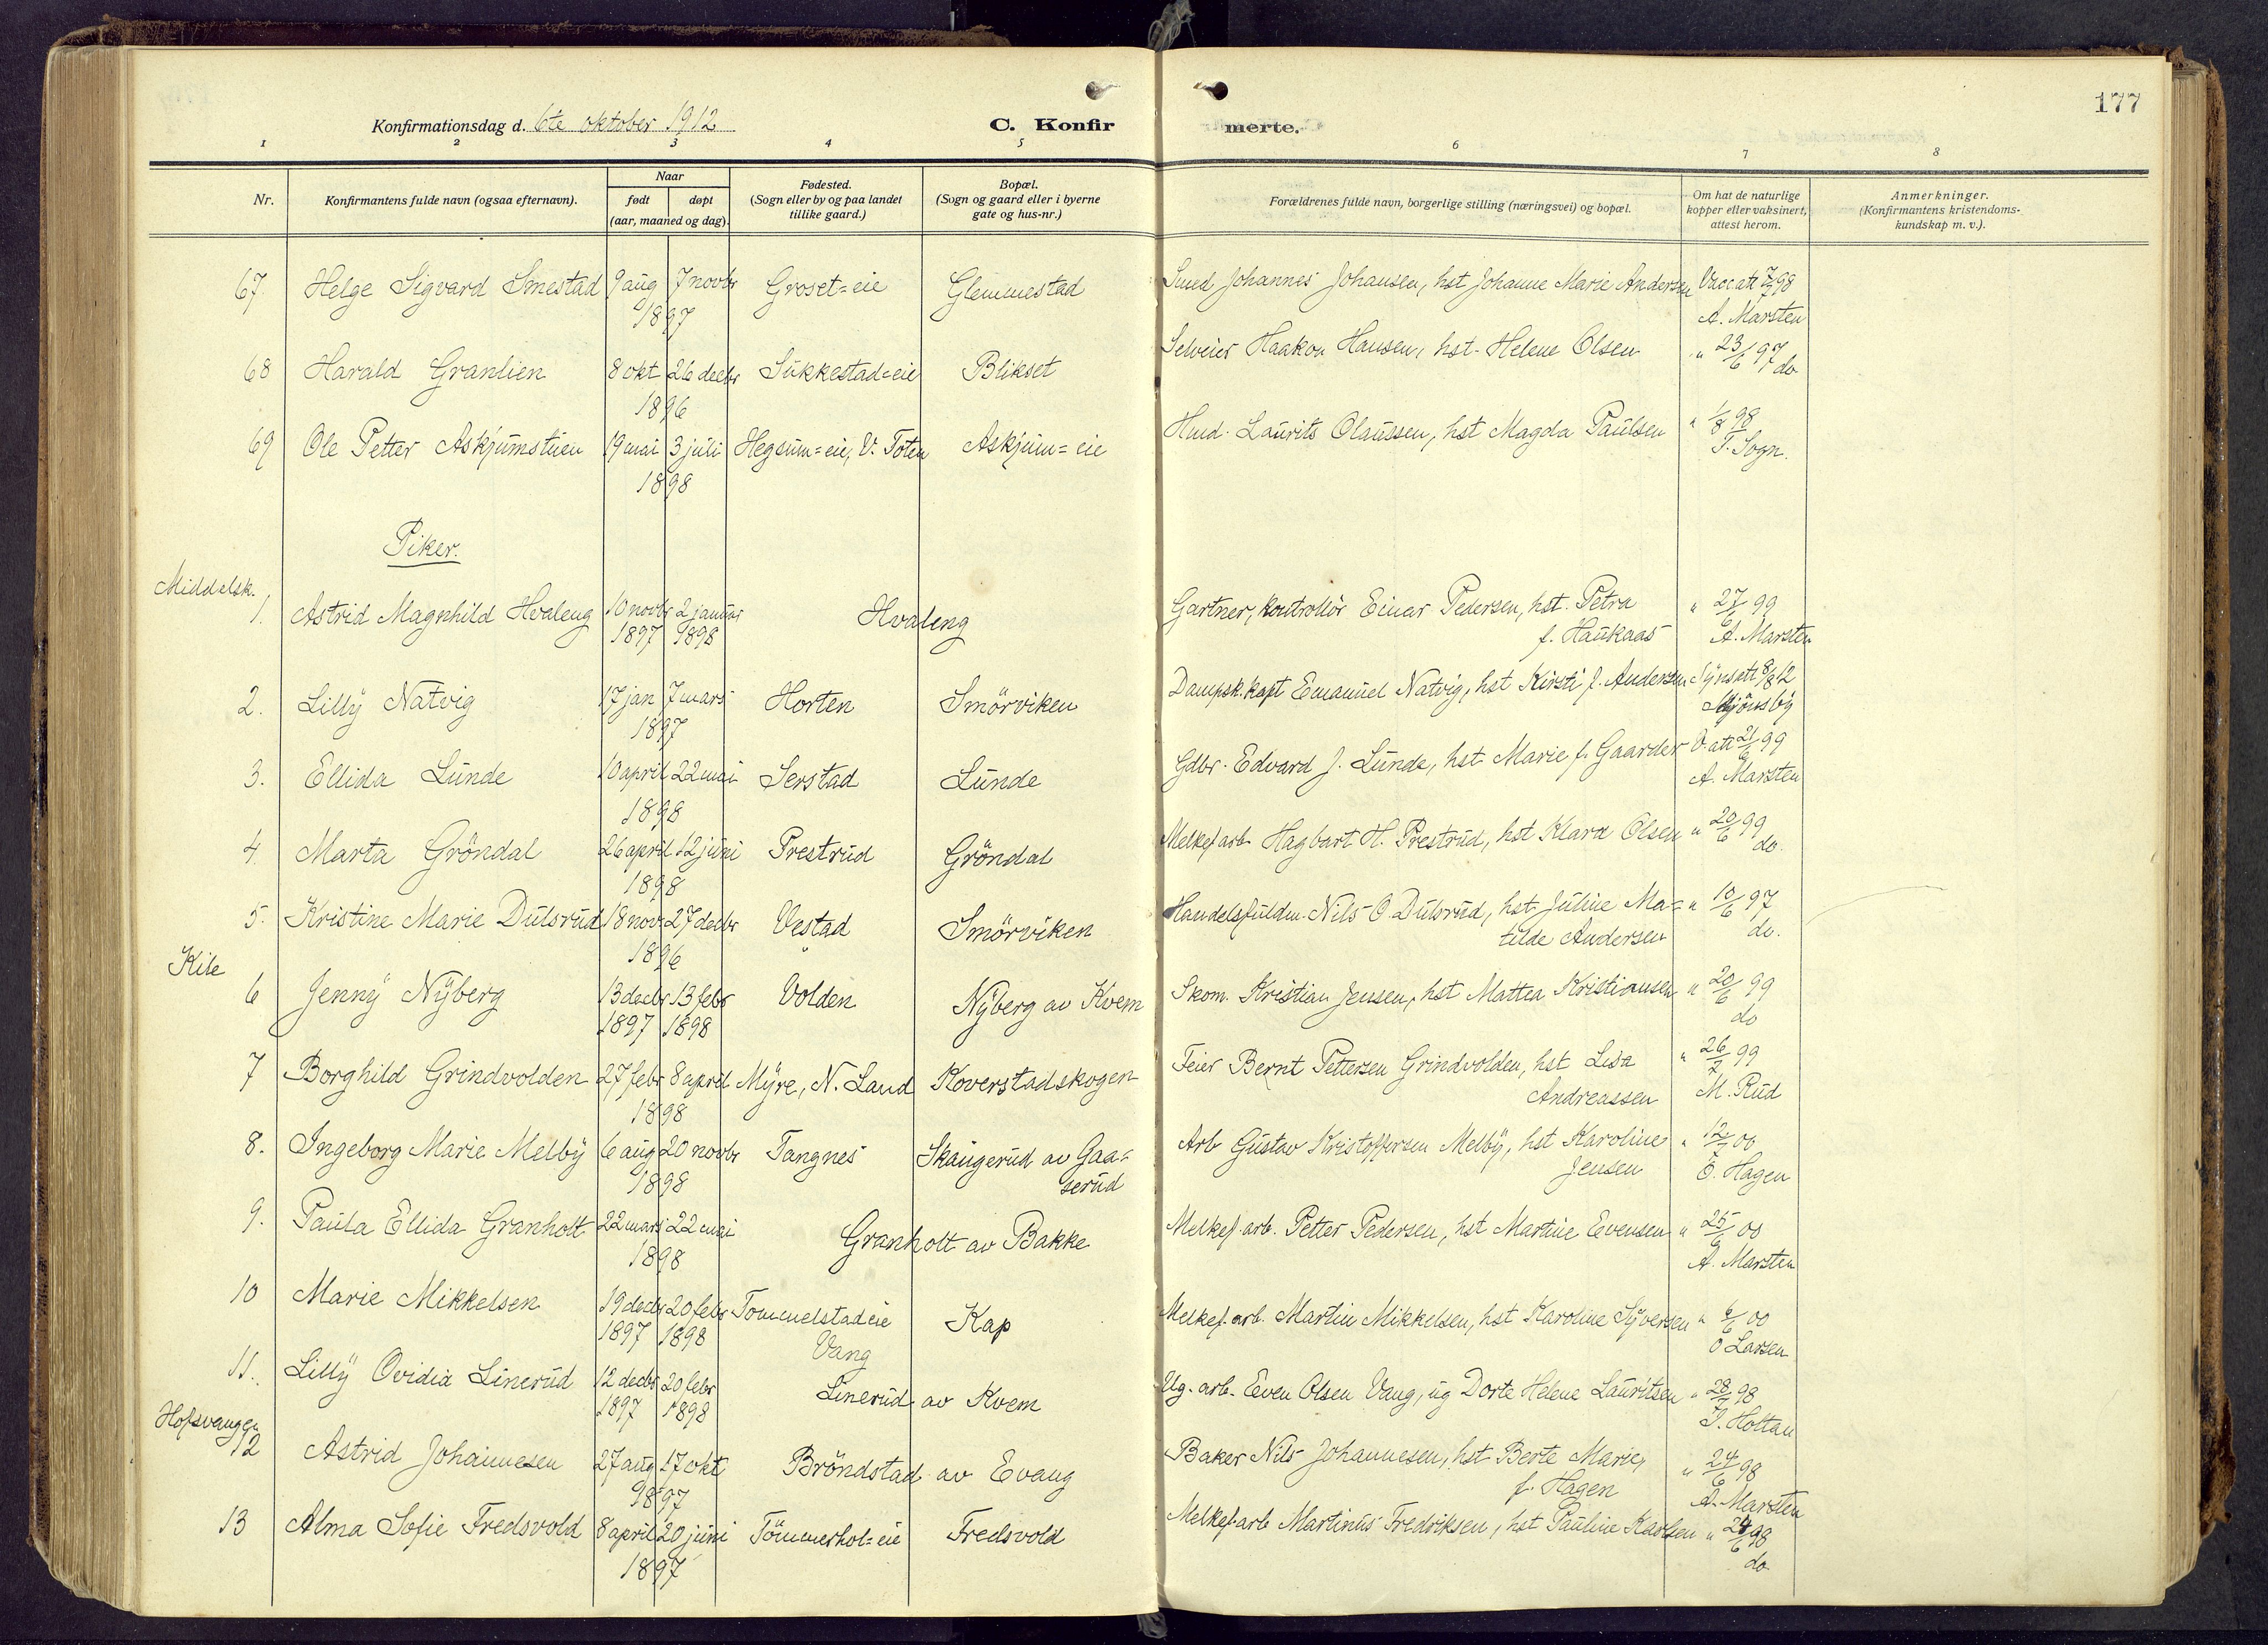 177
Konfirmationsdag d. 6te oktober 1912
C. Konfirmerte.
1 2 3 4 5 6 7 8
Nr. Konfirmantens fulde navn (ogsaa efternavn). Naar født døpt (aar, maaned og dag). Fødested. (Sogn eller by og paa landet tillike gaard.) Bopæl. (Sogn og gaard eller i byerne gate og hus-nr.) Forældrenes fulde navn, borgerlige stilling (næringsvei) og bopæl. Om hat de naturlige kopper eller vaksinert, attest herom. Anmerkninger. (Konfirmantens kristendomskundskap m. v.).
67. Helge Sigvard Smestad 9 aug 7 novbr Groset=eie Glemmestad Smed Johannes Johansen, hst Johanne Marie Andersen Vacc att 7/7 98
1897 A. Marsten
68 Harald Granlien 8 okt 26 decbr Sukkestad=eie Blikset Selveier Haakon Hansen, hst. Helene Olsen " 23/6 97
1896 do
69 Ole Petter Askjumstuen 19 mai 3 juli Hegsum=eie, V. Toten Askjum=eie Hmd. Laurits Olaussen, hst Magda Paulsen " 1/8 98
1898 T. Sogn.
Piker.
Middelsk.
1. Astrid Magnhild Hvaleng 10 novbr 2 januar Hvaleng Gartner, kontrollör Einar Pedersen, hst. Petra " 27/6 99
1897 1898 f. Haukaas A. Marsten
2. Lilly Natvig 17 jan 7 mars Horten Smörviken Dampsk.kapt Emanuel Natvig, hst Kirsti f. Andersen Synsatt 8/8 12
1897 Mjönsby
3. Ellida Lunde 10 april 22 mai Serstad Lunde Gdbr. Edvard J. Lunde, hst Marie f. Gaarder V. att 21/6 99
1898 A. Marsten
4. Marta Gröndal 26 april 12 juni Prestrud Gröndal Melkef.arb Hagbart H. Prestrud, hst Klara Olsen " 20/6 99
1898 do.
5. Kristine Marie Dulsrud 18 nov 27 decbr Vestad Smörviken Handelsfuldm. Nils O. Dulsrud, hst. Juline Ma= " 10/6 97
1896 tilde Andersen do.
Kile
6 Jenny Nyberg 13 decbr 13 febr Volden Nyberg av Kvem Skom. Kristian Jensen, hst Mattea Kristiansen " 20/6 99
1897 1898 do
7 Borghild Grindvolden 27 febr 8 april Myre, N. Land Koverstadskogen Feier Bernt Pettersen Grindvolden, hst Lisa " 26/7 99
1898 Andreassen M. Rud
8. Ingeborg Marie Melby 6 aug 20 novbr Tangnes Skaugerud av Gaa= Arb Gustav Kristoffersen Melby, hst Karoline " 12/7 00
1898 serud Jensen E. Hagen
9. Paula Ellida Granholt 22 mars 22 mai Granholt av Bakke Melkef.arb. Petter Pedersen, hst Martine Evensen " 25/6 00
1898 A. Marsten
10 Marie Mikkelsen 19 decbr 20 febr Tommelstad eie Kap Melkef.arb. Martin Mikkelsen, hst Karoline Syversen " 6/6 00
1897 1898 Vang O Larsen
11. Lilly Ovidia Linerud 12 decbr 20 febr Linerud av Kvem Ug. arb. Even Olsen Vang, ug Dorte Helene Lauritsen " 28/7 98
1897 1898 J. Holtan
Hofsvangen
12 Astrid Johannesen 27 aug 17 okt Bröndstad av Evang Baker Nils Johannesen, hst. Berte Marie, " 24/6 98
1897 f. Hagen A. Marsten
13 Alma Sofie Fredsvold 8 april 20 juni Tömmerhol=eie Fredsvold Melkef.arb Martinus Fredriksen, hst Pauline Karlsen " 24/6 98
1897 do